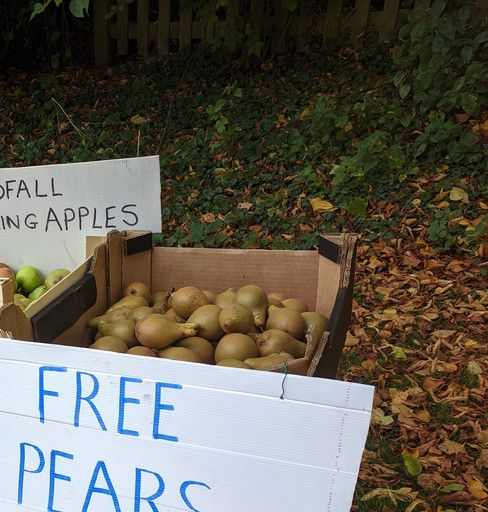 DFALL
ING APPLES
FREE
PEARS